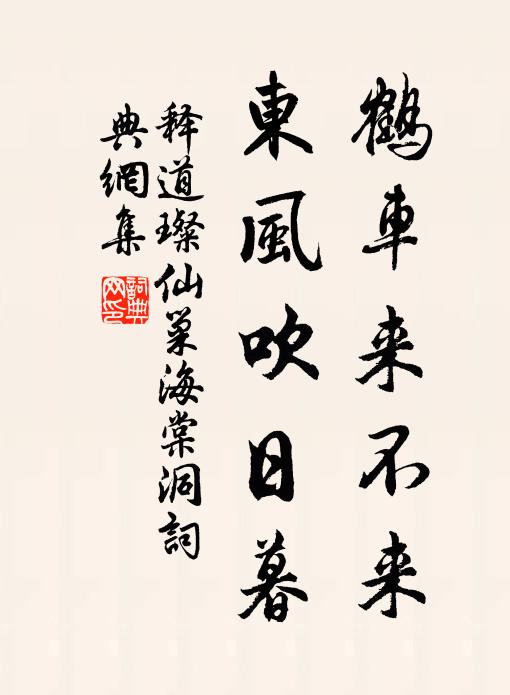 鶴車来不来
東風吹日暮
释道璨仙巢海棠洞詞
典網集
詞典
网印